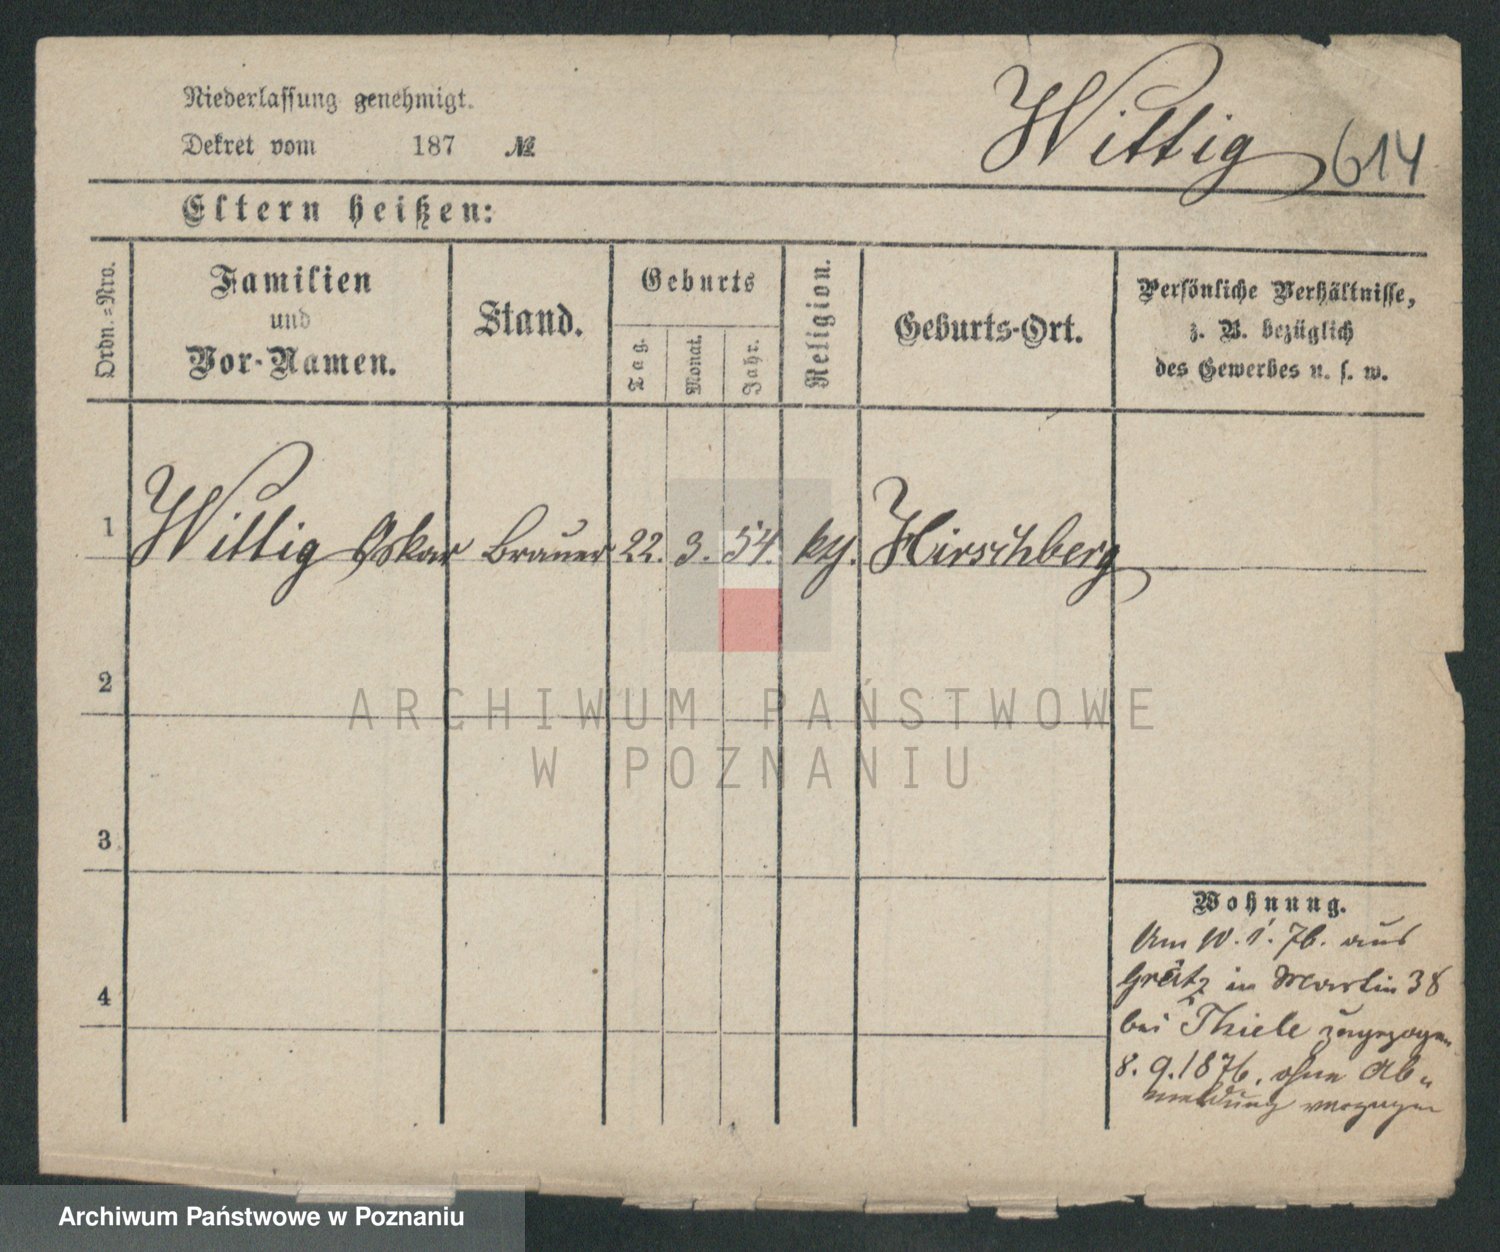 Niederlassung genehmigt.
Dekret vom 187 №
Wittig 614
Eltern heißen:
Ordn.=Nro.
Familien
und
Vor-Namen.
Stand.
Geburts
Tag.
Monat.
Jahr.
Religion.
Geburts-Ort.
Persönliche Verhältnisse,
z. B. bezüglich
des Gewerbes u. s. w.
1 Wittig Oskar Brauer 22. 3. 54. Hirschberg
2
ARCHIWUM PAŃSTWOWE
W POZNANIU
3
4
Wohnung.
Am 10. 1. 76. aus
Grätz in Martin 38
bei Thiele zugezogen
8. 9. 1876. ohne Ab-
meldung verzogen
Archiwum Państwowe w Poznaniu